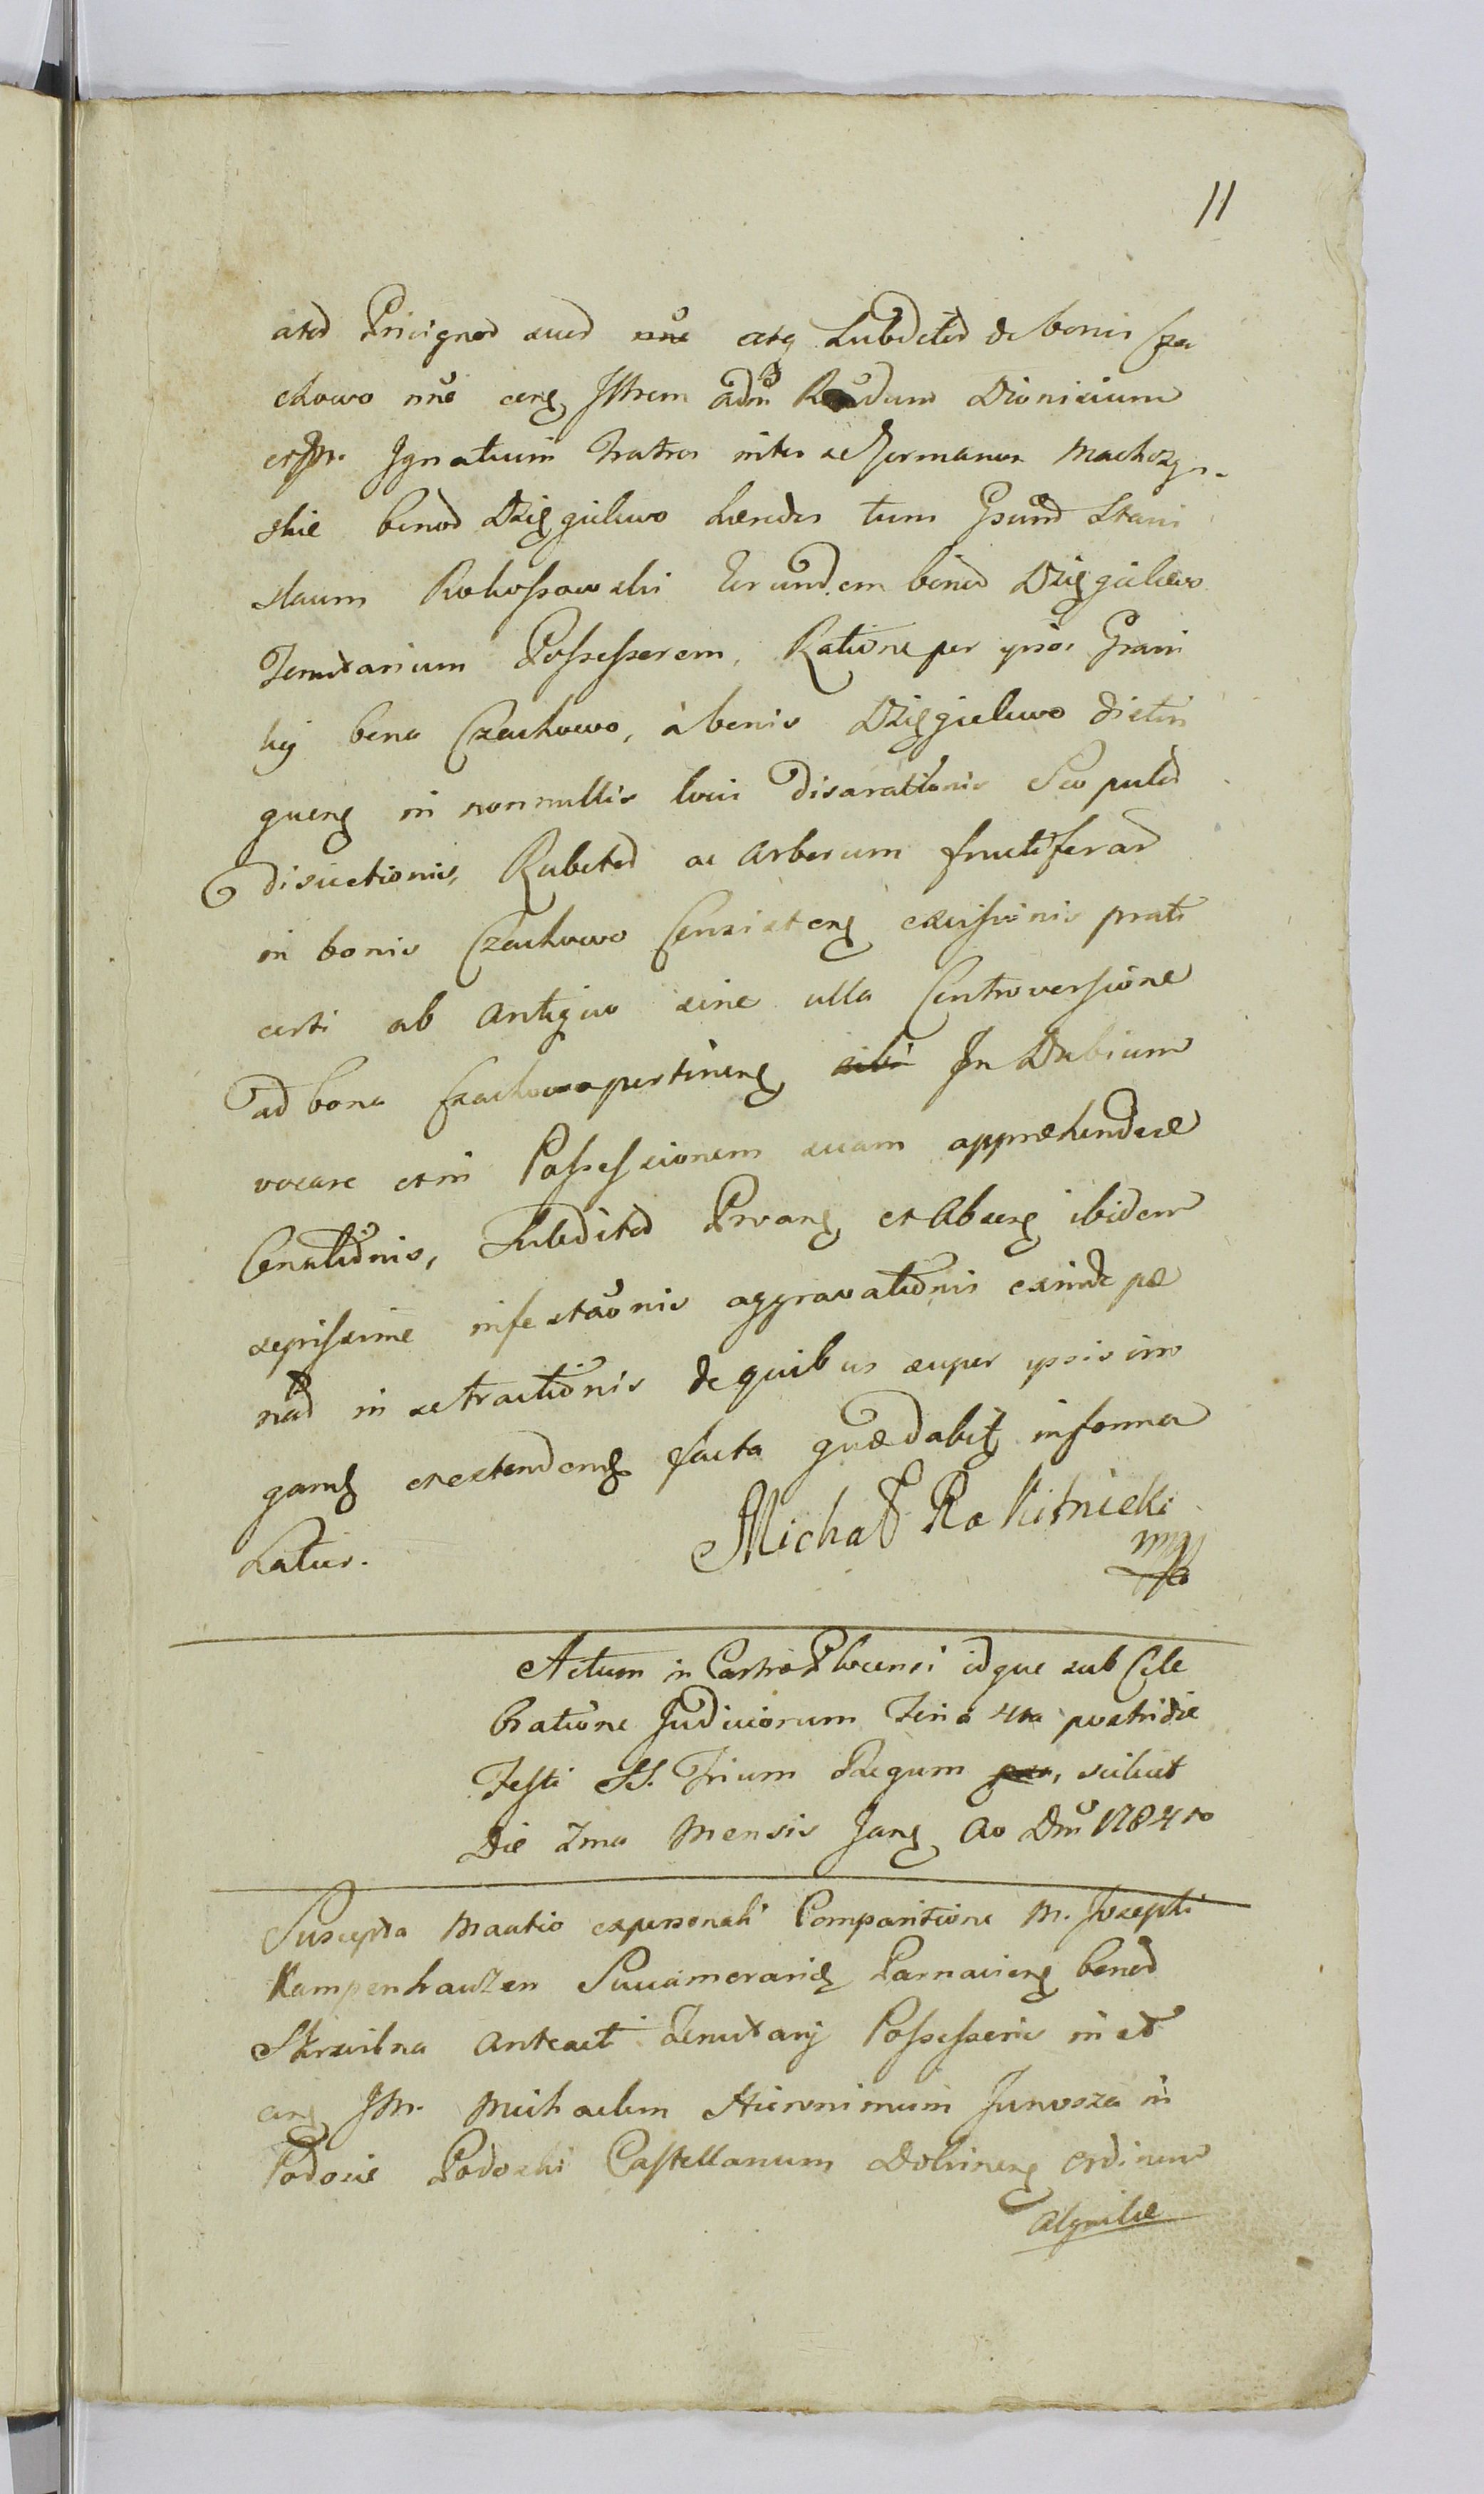 11
ated Privignod sued nne atq Subditod de bonis Cza
chowo nne ceng Jllrem adm Rndum Dionisium
et Jm. Ignatium Fratres inter se Germanos Machczyn-
skie bonod Dzięgielewo Hæredes tum Gsumd Stani
slaum Rokossowski Eorundem bonod Dzięgielewo
Tenutarium Possessorem, Ratione per ipsos Grani
hij bona Czachowo, à bonis Dzięgielewo distin
gueng in nonnullis locis disarationis Scopulod
disiectionis, Rubetod ac Arborum fructiferar
in bonis Czachowo Consisteng excisionis prati
certi ab Antiquo sine ulla Controversione
ad bona Czachowo pertineng In Dubium
vocare et in Possessionem suam appræhendere
Conationis, Subditod Prvang et Absorg ibidem
sæpissime infestaonis aggravationis exinde pæ
nad in se tractionis de quibus super ipsis irro
gamg et extendendg facta quædabit informa
Latius.
Michał Rokitnicki
mp
Actum in Castro Plocensi idque sub Cele
bratione Judiciorum Feria 4ta postridie
Festi SS. Trium Regum scilicet
Die 7ma Mensis Jang Ao Dni 1784to
Suscepta Mantio expersonali Comparitione M. Josephi
Kampenhauzen Succamerarid Parnavieng bonod
Skrwilna Anteact Tenutarij Possessoris in et
ceng Jm. Michaelem Hieronimum Junosza in
Podosie Podoski Castellanum Dobrineng Ordinum
Aquilæ